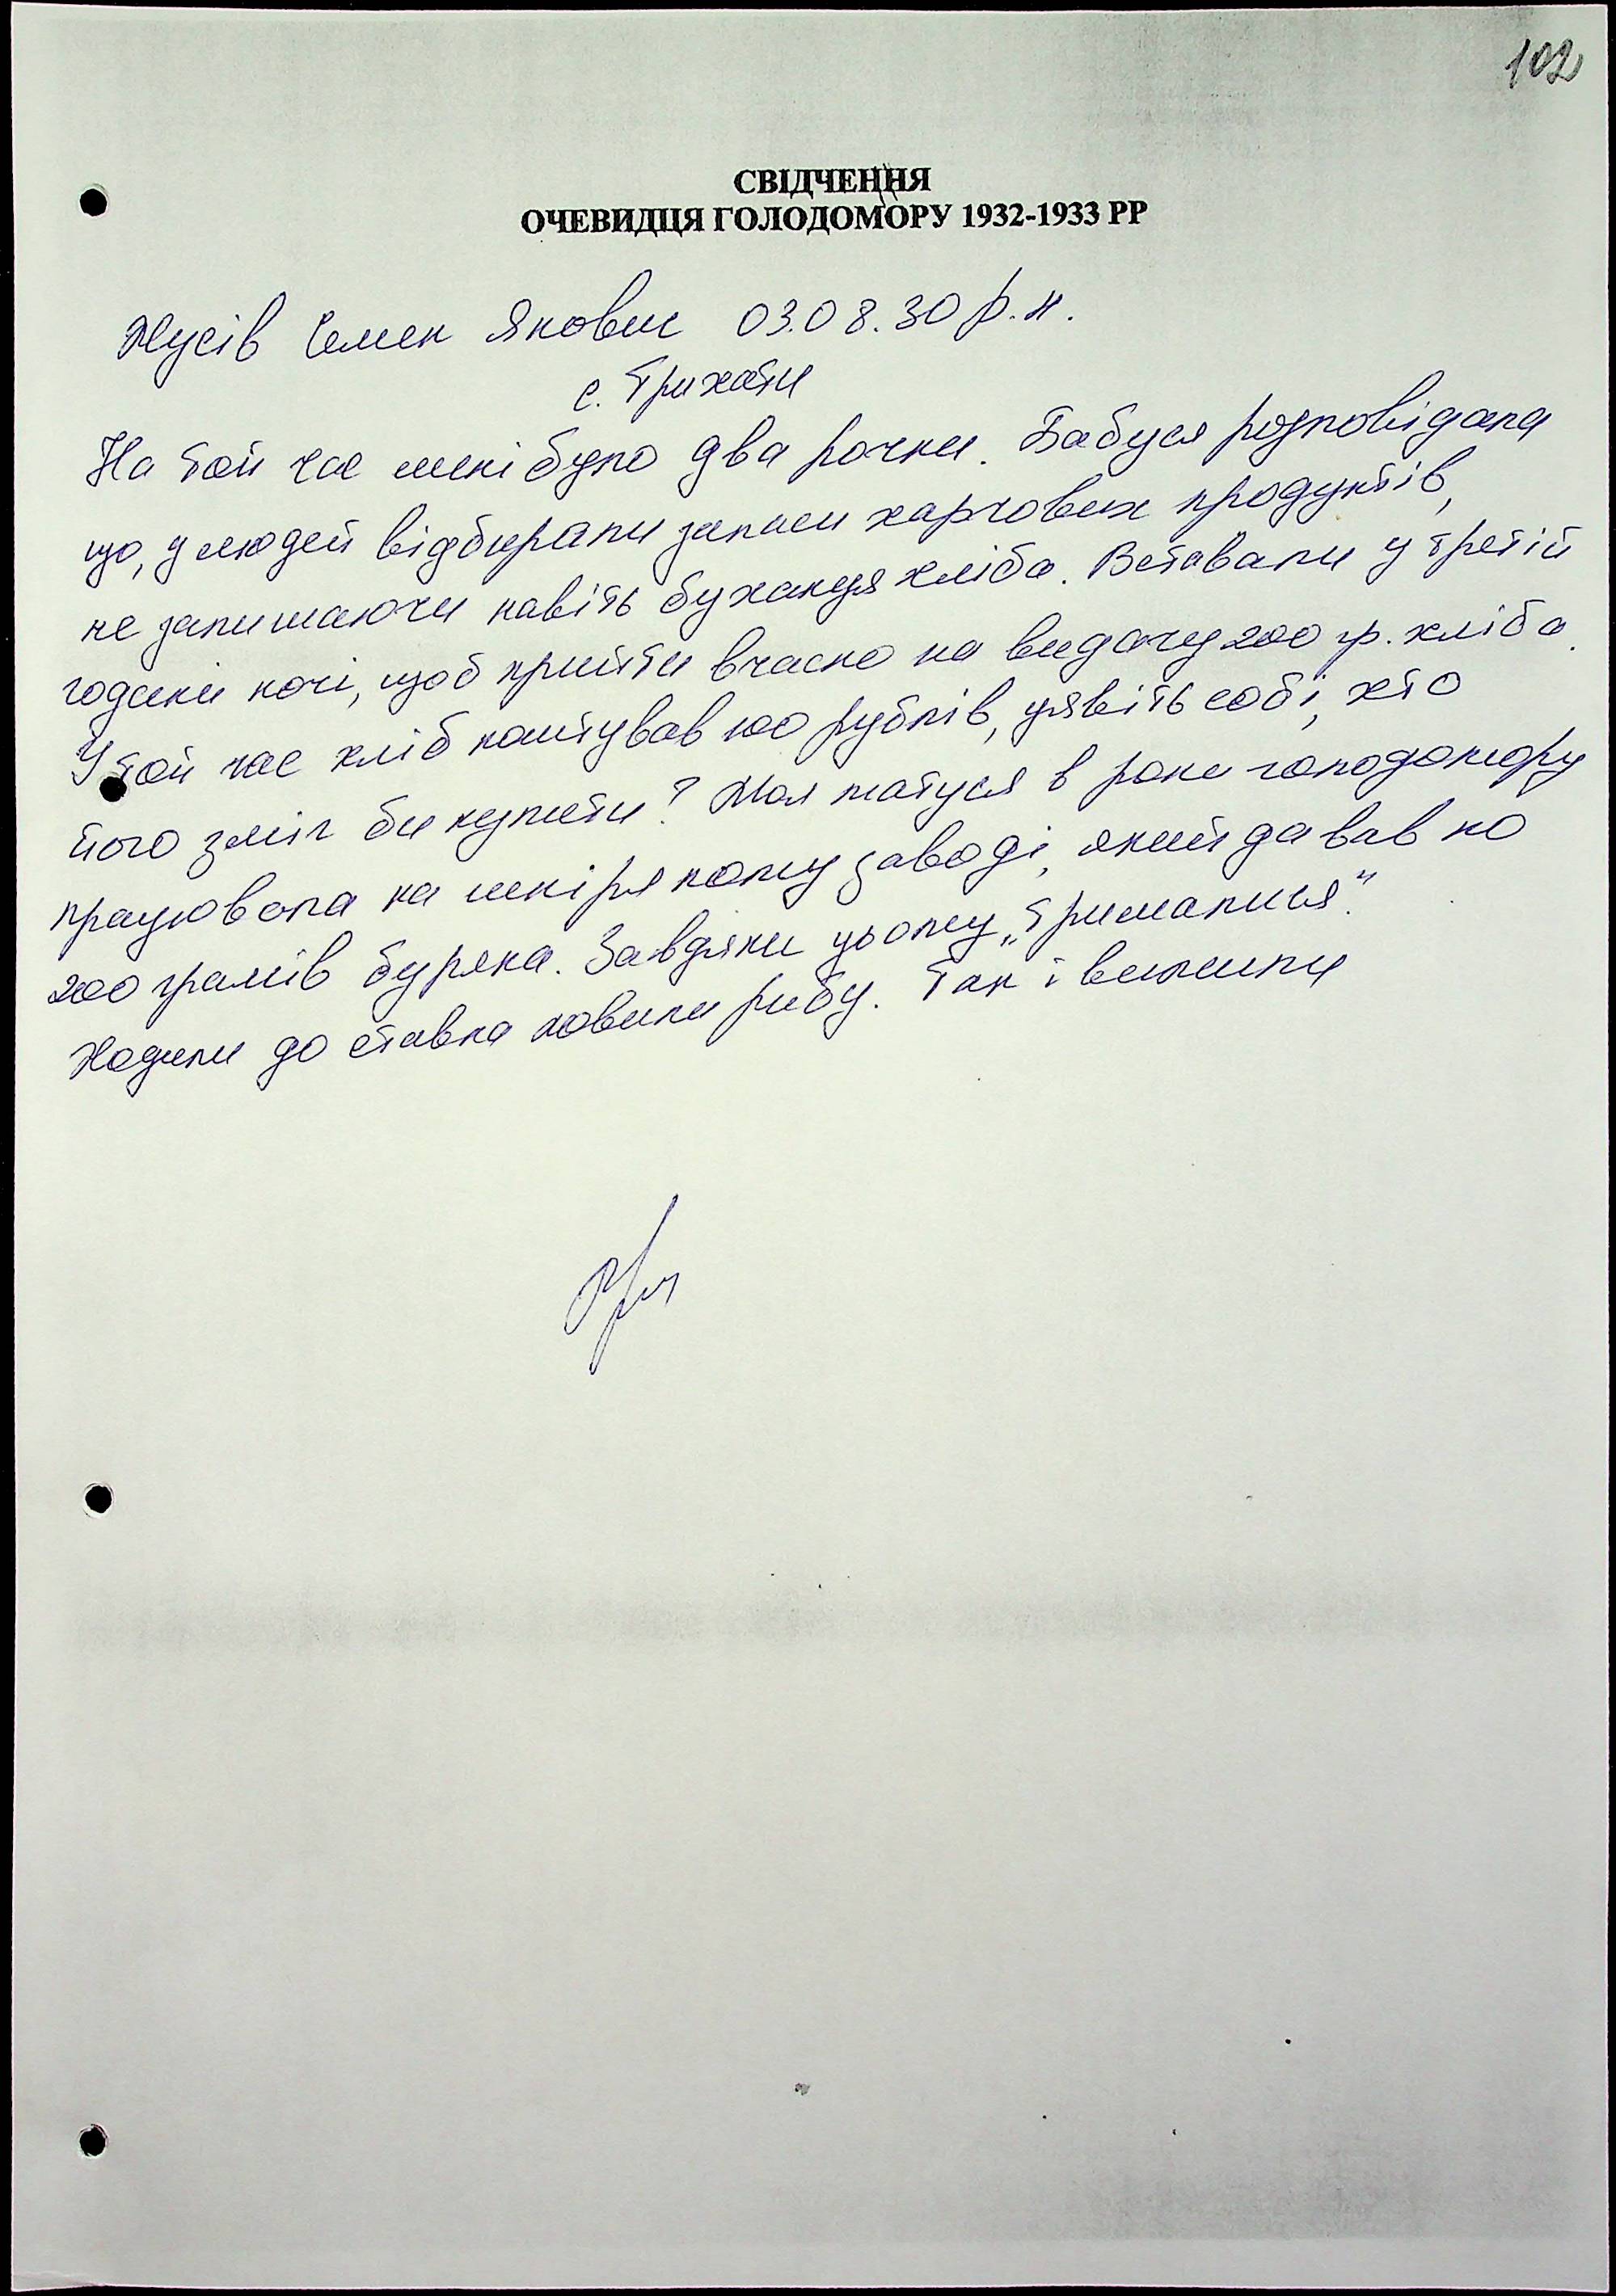 102
СВІДЧЕННЯ
ОЧЕВИДЦЯ ГОЛОДОМОРУ 1932-1933 РР
Семен Якович 03.08.30 р.н.
с. Трихати
На той час мені було два рочки. Бабуся розповідала
що, у людей відбирали запаси харчових продуктів,
не залишаючи навіть буханця хліба. Вставали у третій
години ночі, щоб прийти вчасно на видачу 200 гр. хліба.
У той час хліб коштував 100 рублів, уявіть собі, хто
його зміг би купити? Моя матуся в роки голодомору
працювала на шкіряному заводі, який давав по
200 грамів буряка. Завдяки цьому „трималися".
Ходили до ставка ловили рибу. Так і вижили